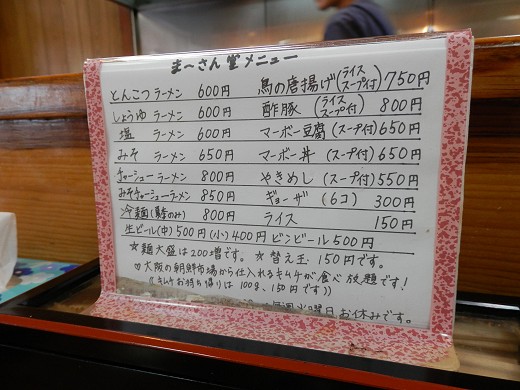 ま〜さん堂メニュー
とんこつラーメン 600円 鳥の唐揚げ(ライス スープ付) 750円
しょうゆ ラーメン 600円 酢豚 (ライス スープ付) 800円
塩 ラーメン 600円 マーボー豆腐(スープ付) 650円
みそ ラーメン 650円 マーボー丼 (スープ付) 650円
チャーシューラーメン 850円 やきめし (スープ付) 550円
みそチャーシューラーメン 850円 ギョーザ (6コ) 300円
冷麺(夏季のみ) 800円 ライス 150円
生ビール(中)500円(小)400円 ビンビール 500円
☆麺大盛は200増です。☆替え玉 150円です。
大阪の朝鮮市場から仕入れるキムチが食べ放題です!
(キムチお持ち帰りは100g、150円です))
毎週火曜日お休みです。